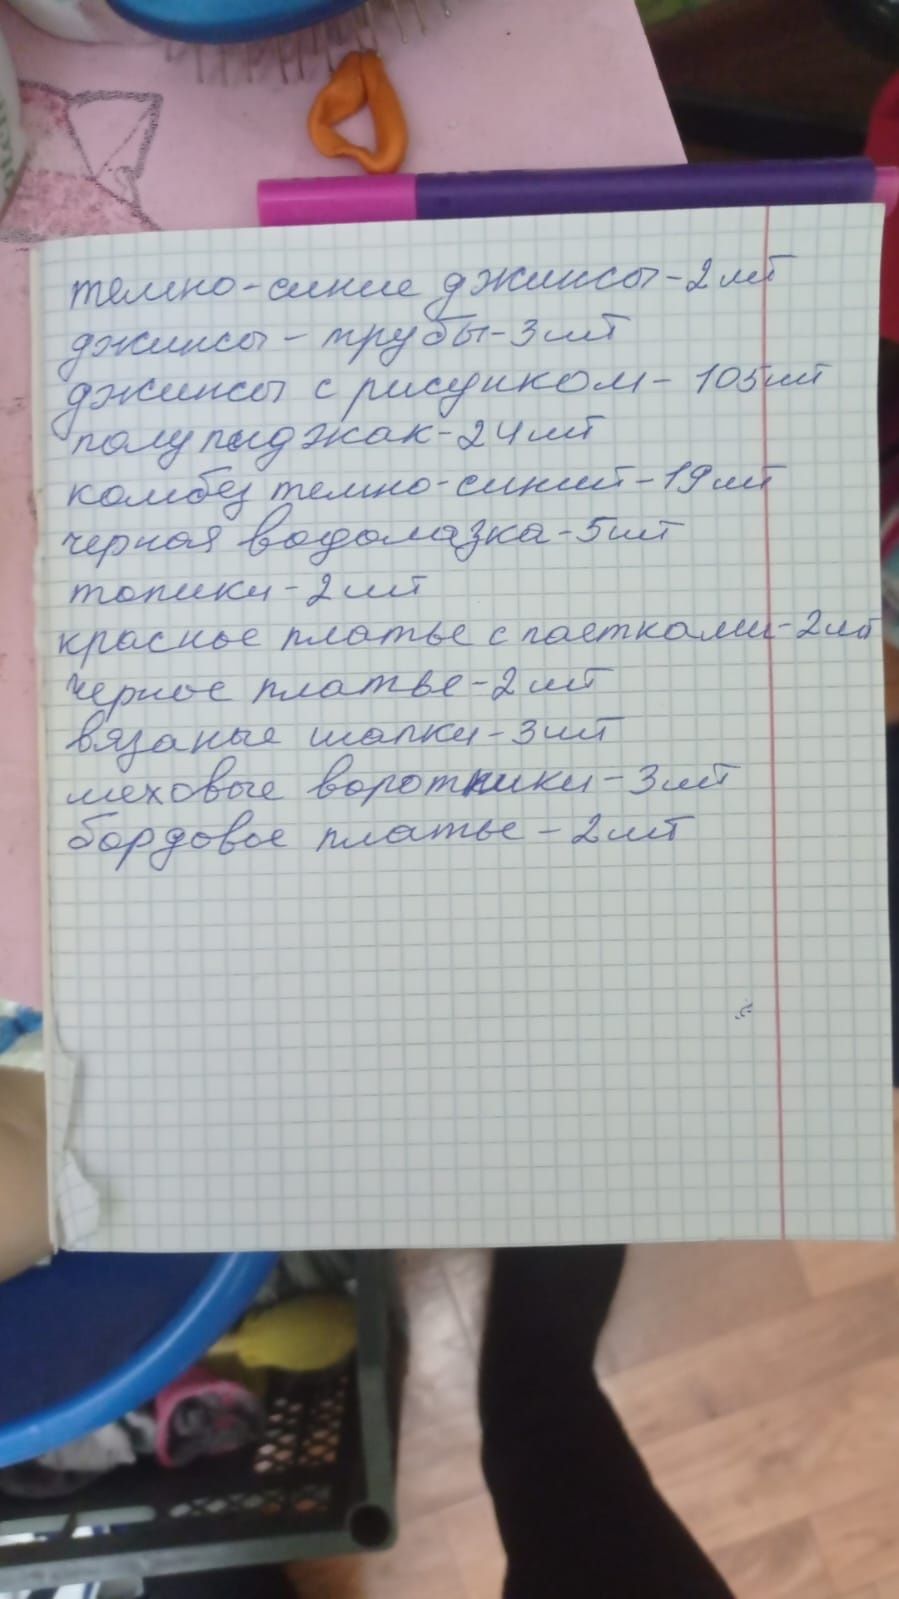 темно-синие джинсы-2шт
джинсы-трубы-3шт
джинсы с рисунком-105шт
полупиджак-24шт
комбез темно-синий-19шт
черная водолазка-5шт
топики-2шт
красное платье с паетками-2шт
черное платье-2шт
вязаные шапки-3шт
меховые воротники-3шт
бордовое платье-2шт